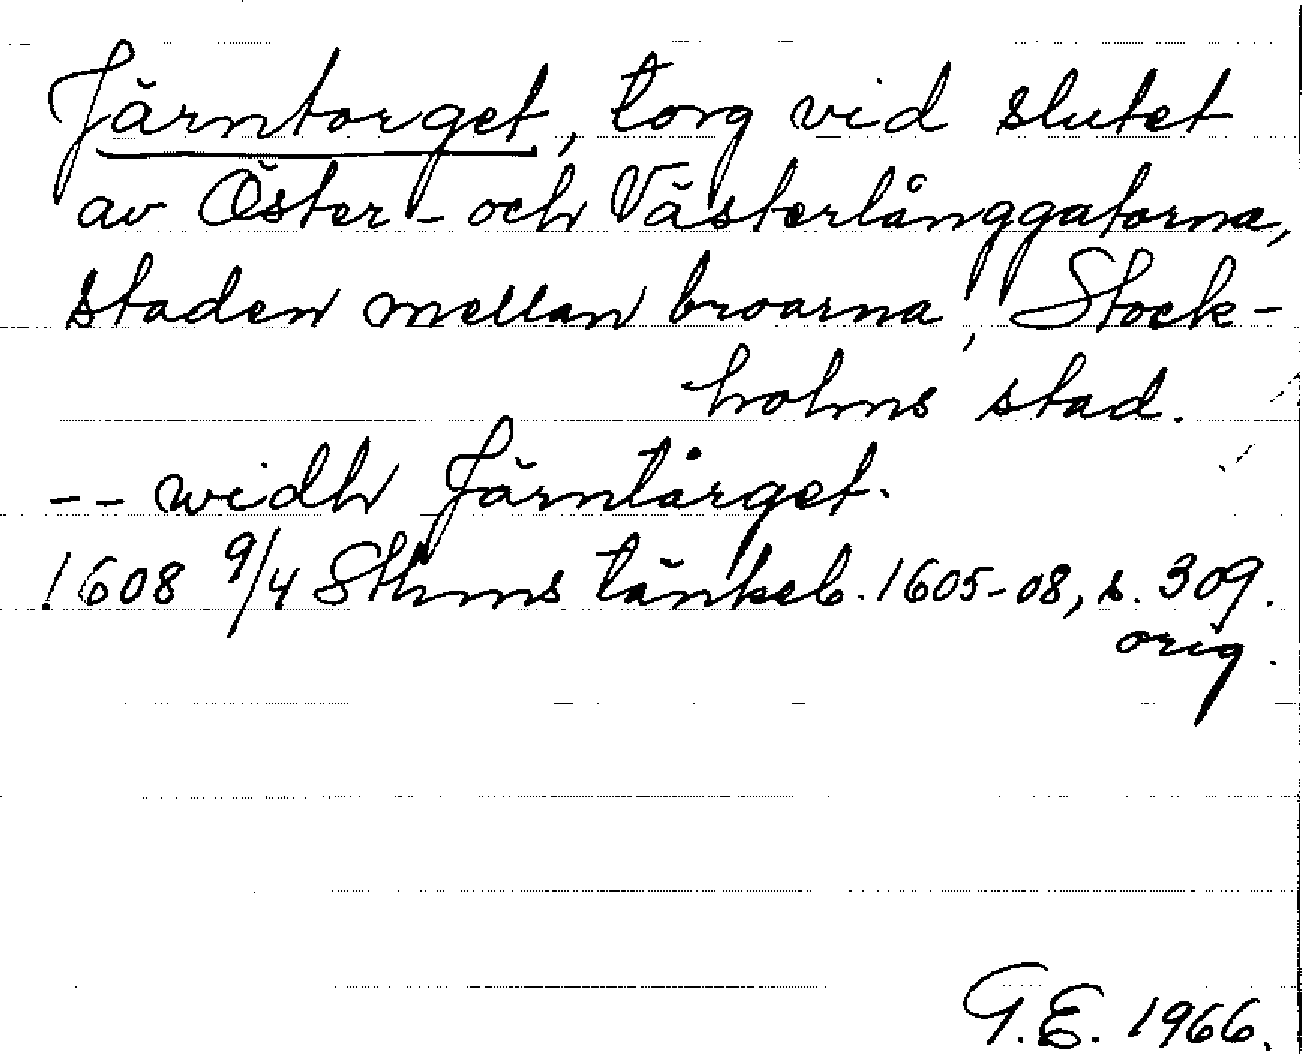 Järntorget, torg vid slutet
av Öster- och Västerlånggatorna,
staden mellan broarna, Stock-
holms stad.
-- widh Järntårget.
1608 9/4 Sthms tänkeb. 1605-08, s. 309.
orig.
G.E. 1966.